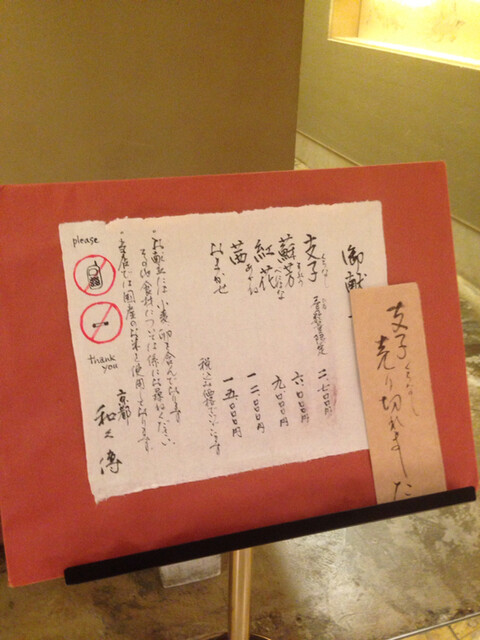 御献
支子 くちなし 平日お昼限定 二、七〇〇円
蘇芳 すおう 六、〇〇〇円
紅花 べにばな 九、〇〇〇円
茜 あかね 一二、〇〇〇円
おまかせ 一五、〇〇〇円
税込お値段でございます
・お献立には小麦、卵を含んでおります
その他食材については係にお尋ねください
・当店では国産のお米を使用しております
京都
和久傳
please
thank you
支子 くちなし
売り切れました